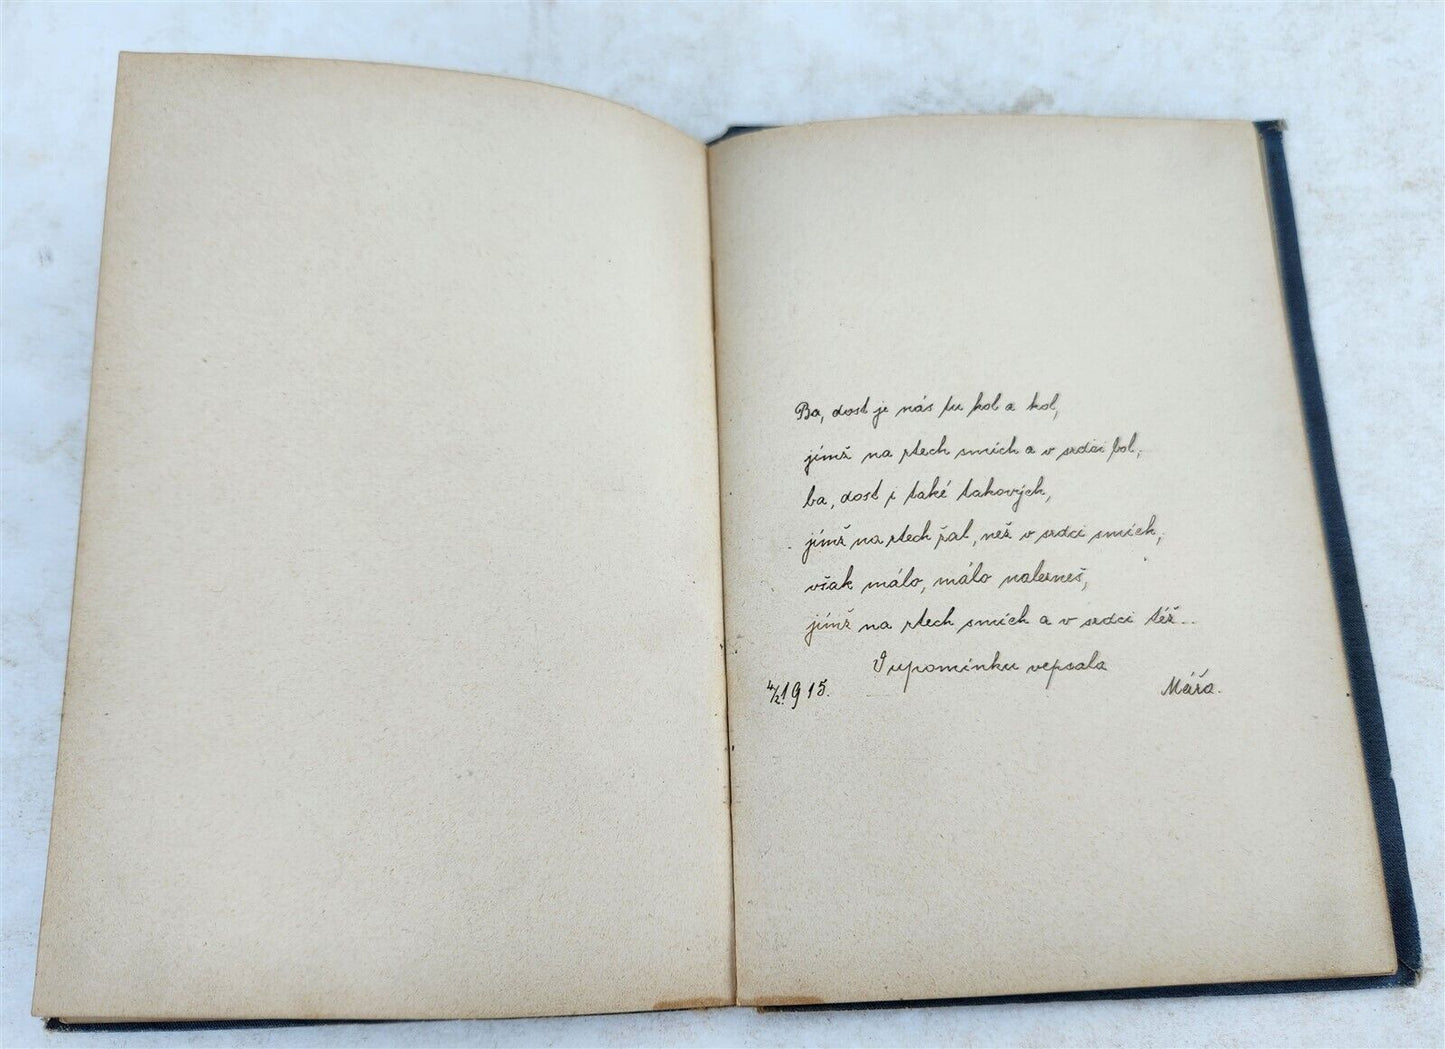 Ba, dost je nás tu kol a kol,
jímž na rtech smích a v srdci bol,
ba, dost i také takových,
jímž na rtech žal, než v srdci smích,
však málo, málo nalezneš,
jímž na rtech smích a v srdci též...
V upomínku vepsala
4/2. 1915.
Máňa.